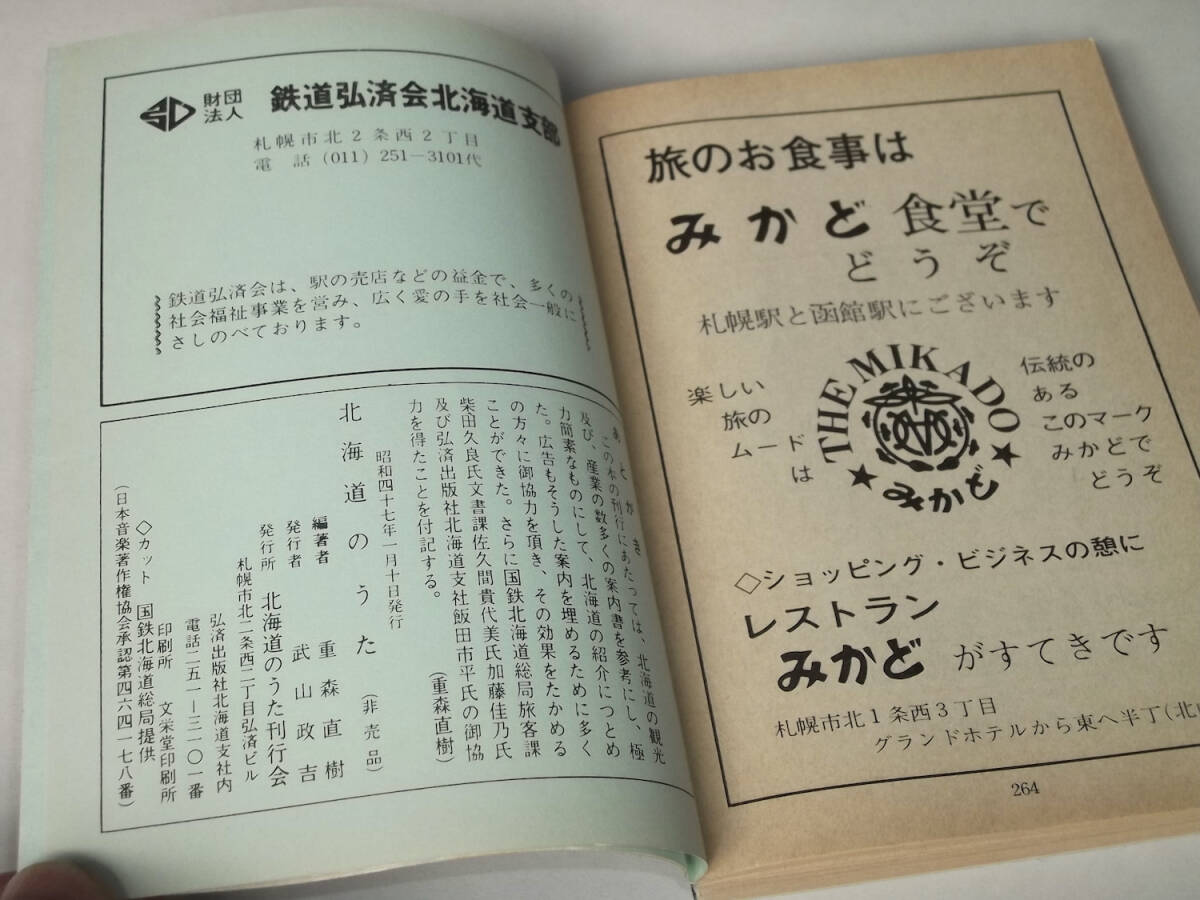 財団
法人
鉄道弘済会北海道支部
札幌市北2条西2丁目
電話(011)251-3101代
鉄道弘済会は、駅の売店などの益金で、多くの
社会福祉事業を営み、広く愛の手を社会一般に
さしのべております。
あとがき
この本の刊行にあたっては、北海道の観光
及び、産業の数多くの案内書を参考にし、極
力簡素なものにして、北海道の紹介につとめ
た。広告もそうした案内を埋めるために多く
の方々に御協力を頂き、その効果をたかめる
ことができた。さらに国鉄北海道総局旅客課
柴田久良氏文書課佐久間貴代美氏加藤佳乃氏
及び弘済出版社北海道支社飯田市平氏の御協
力を得たことを付記する。
(重森直樹)
昭和四十七年一月十日発行
北海道のうた (非売品)
編著者 重森直樹
発行者 武山政吉
発行所 北海道のうた刊行会
札幌市北二条西二丁目弘済ビル
弘済出版社北海道支社内
電話二五一―三一〇一番
印刷所 文栄堂印刷所
◇カット 国鉄北海道総局提供
(日本音楽著作権協会承認第四六四一七八番)
旅のお食事は
みかど食堂で
どうぞ
札幌駅と函館駅にございます
楽しい
旅の
ムード
は
THE MIKADO
みかど
伝統の
ある
このマーク
みかどで
どうぞ
◇ショッピング・ビジネスの憩に
レストラン
みかど がすてきです
札幌市北1条西3丁目
グランドホテルから東へ半丁(北
264